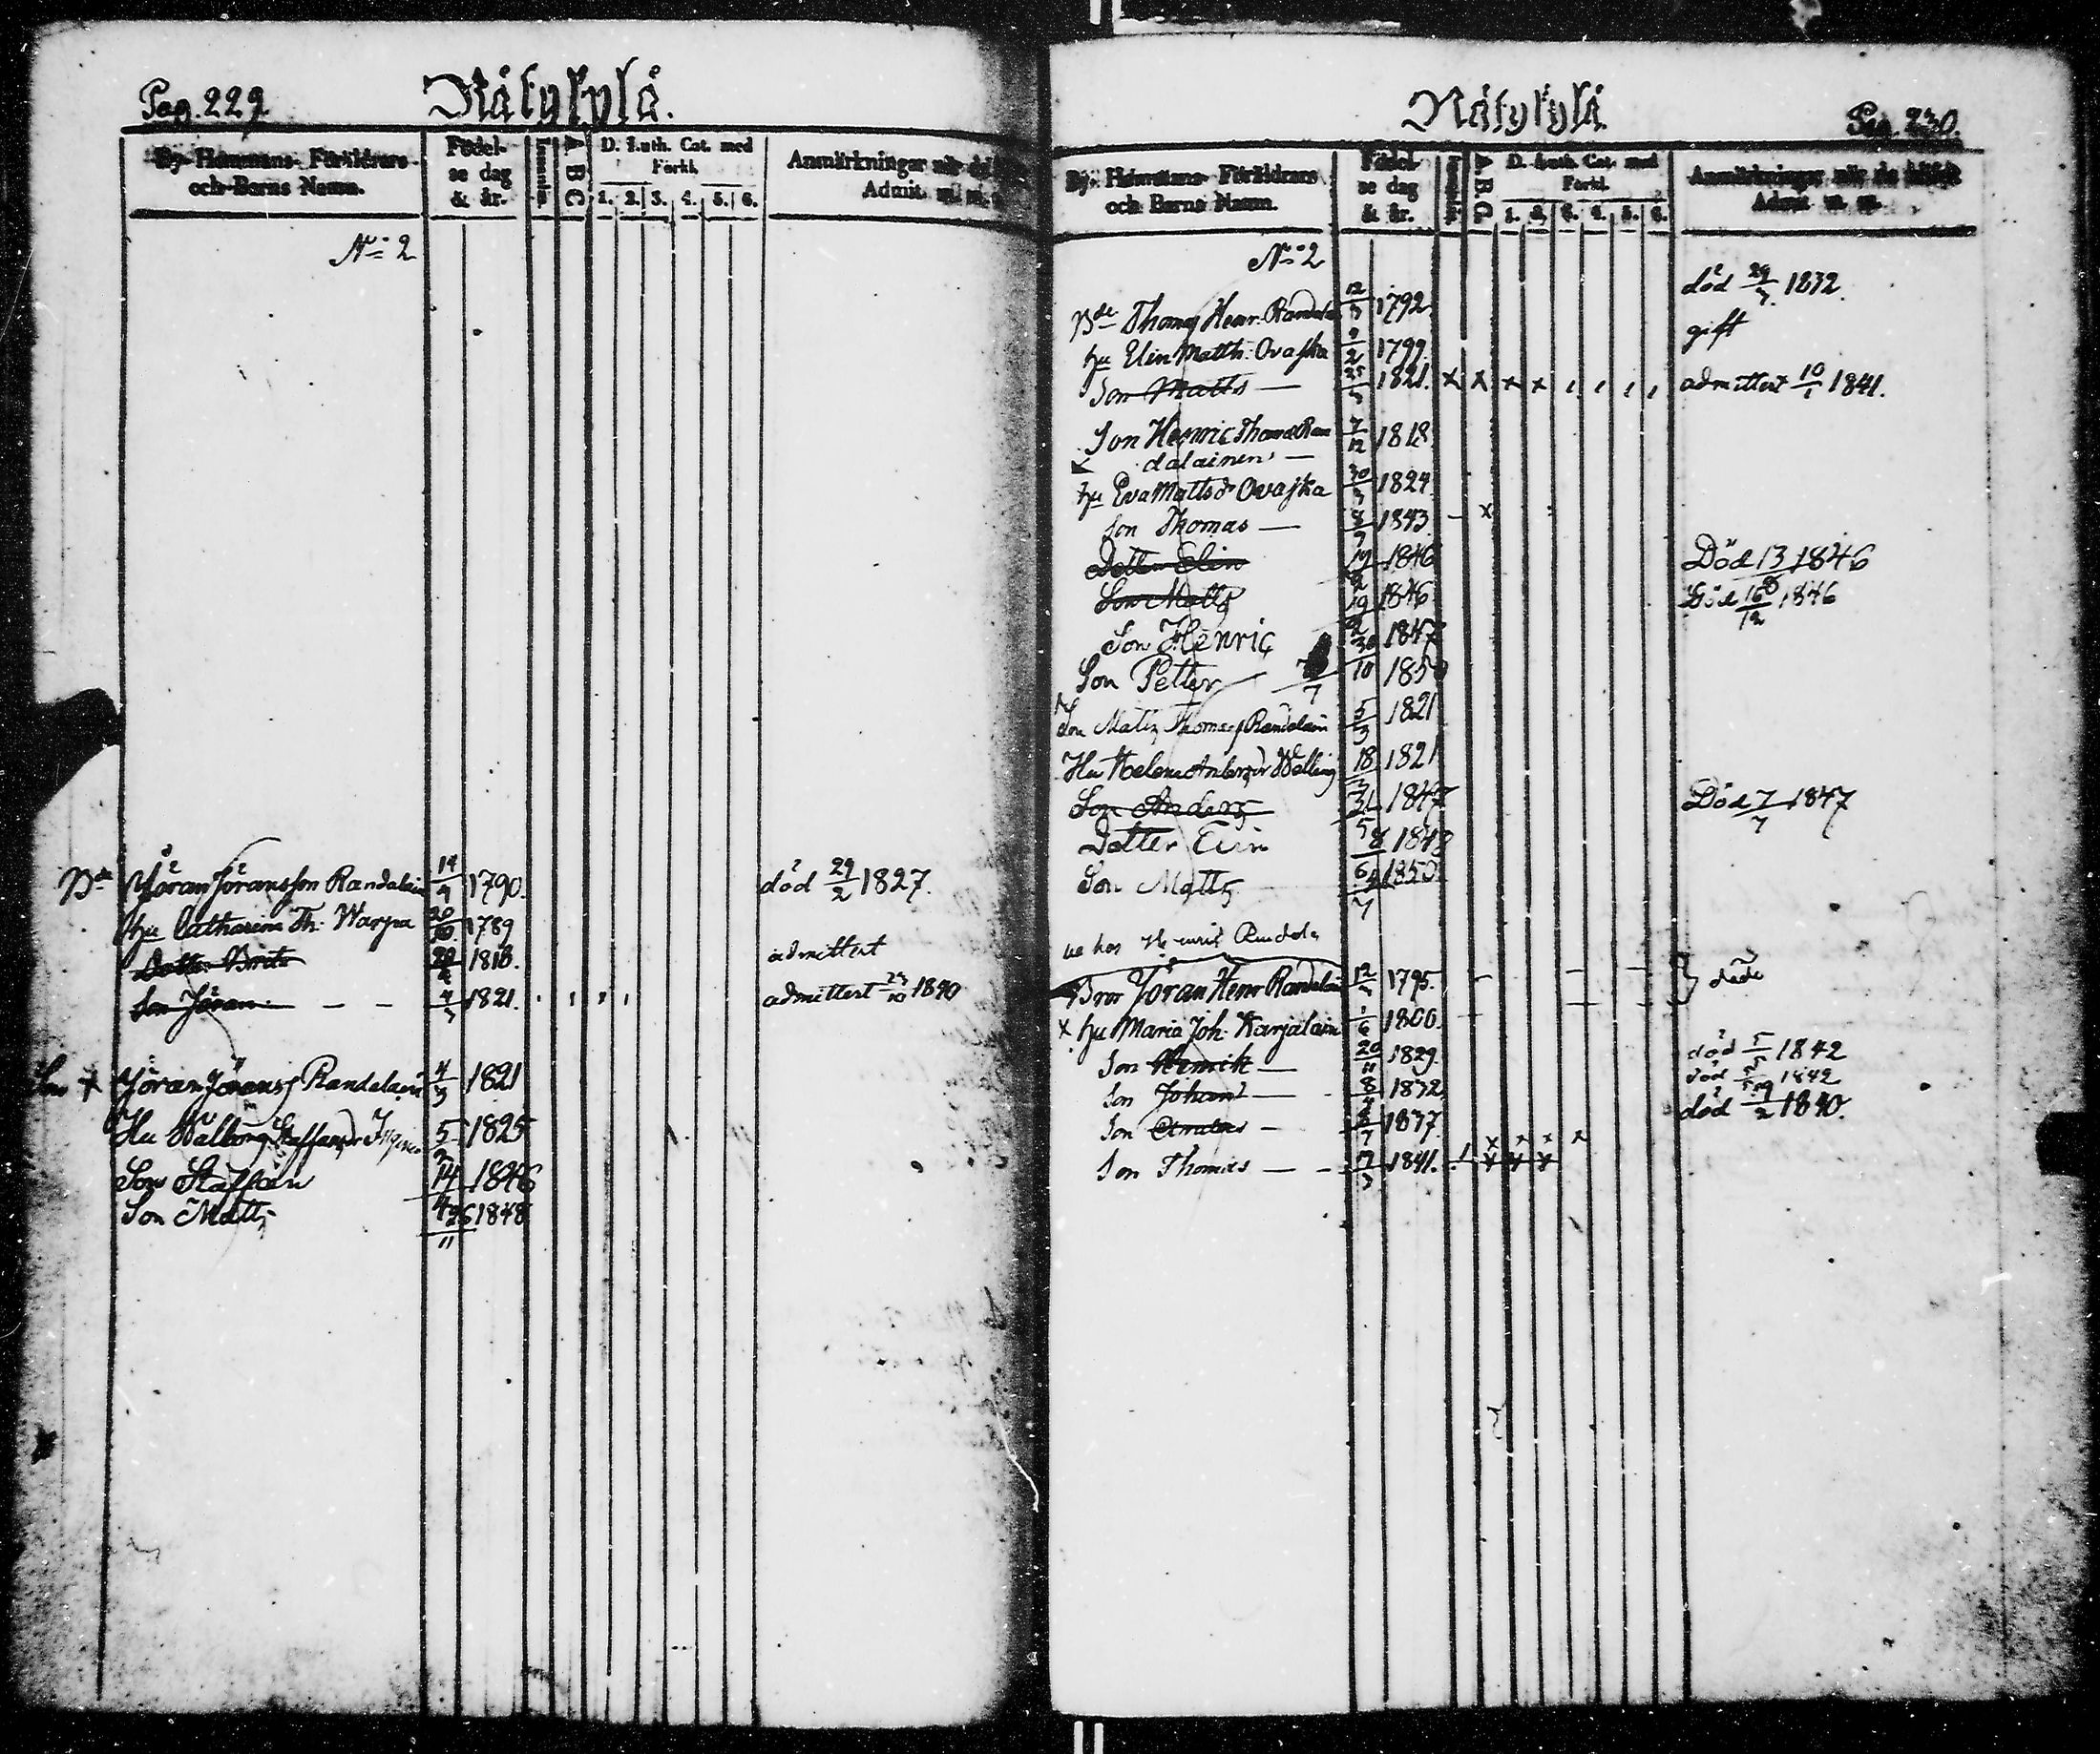 Pag. 229.
Nätykylä.
By- Hemmans- Föräldrars
och Barns Namn.
Födel-
se dag
& år.
A B C
D. Luth. Cat. med
Förkl.
1. 2. 3. 4. 5. 6.
Anmärkningar när de
Admit. m. m.
No 2
Bde Jöran Jöransson Randalain 14/9 1790. död 29/2 1827.
hu Catharina Th. Warpa 1789
Dotter Brita 1818. admittert
Son Jöran 4/3 1821. admittert 1840
Son + Jöran Jöranss Randelain 4/3 1821
Hu Walborg Staffansdr 5 1825
Son Staffan 14/4 1846
Son Matts 26/11 1848
Nätykylä.
Pag. 230.
By- Hemmans- Föräldrars
och Barns Namn.
Födel-
se dag
& år.
A B C
D. Luth. Cat. med
Förkl.
1. 2. 3. 4. 5. 6.
Anmärkningar när de
Admit m. m.
No 2
död 29/7 1832.
Bde Thomas Henr. Randala 12/3 1792.
gift
hu Elin Matth. Ovaska 9/2 1799.
Son Matts — 25/3 1821. x x x x admittert 10/1 1841.
Son Henric Thomas Ran 7/12 1818
dalainen —
hu Eva Mattsdr Ovaska 30/3 1824.
Son Thomas — 1843 x
Dotter Elin 19/2 1846 Död 13 1846
Son Matts 19/2 1846 Död 16/12 1846
Son Henric 30/10 1847
Son Petter /7 1850
Son Matts Thomass Randelain 5/3 1821
Hu Helena Andersdr Walling 18 1821
Son Anders 31/5 1847 Död 7/7 1847
Dotter Elin 8/6 1848
Son Matts 4/7 1850
Henric Randala
Bror Jöran Henr Randalain 12 1795. döde
x hu Maria Joh. Karjalain 1/6 1800.
Son Henrik — 20/11 1829. död 5/5 1842
Son Johan — 8 1832 död 1842
Son — 1837. död 19/2 1840.
Son Thomas — 1841.